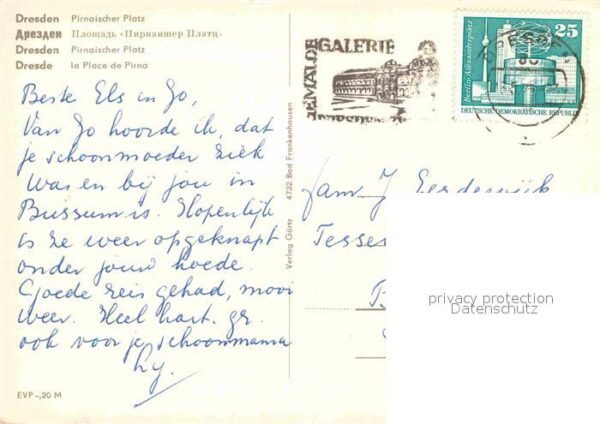 Dresden Pirnaischer Platz
Дрезден Площадь «Пирнаишер Платц»
Dresden Pirnaischer Platz
Dresde la Place de Pirna
Beste Els en Jo,
Van Jo hoorde ik, dat
je schoonmoeder ziek
was en bij jou in
Bussum is. Hopenlijk
is ze weer opgeknapt
onder jouw hoede.
Goede reis gehad, mooi
weer. Heel hart. gr.
ook voor je schoonmama
EVP -,20 M
Verlag Görtz 4732 Bad Frankenhausen
GEMÄLDE
GALERIE
DRESDEN
25
Berlin-Alexanderplatz
DEUTSCHE DEMOKRATISCHE REPUBLIK
Fam J
Tesse
privacy protection
Datenschutz